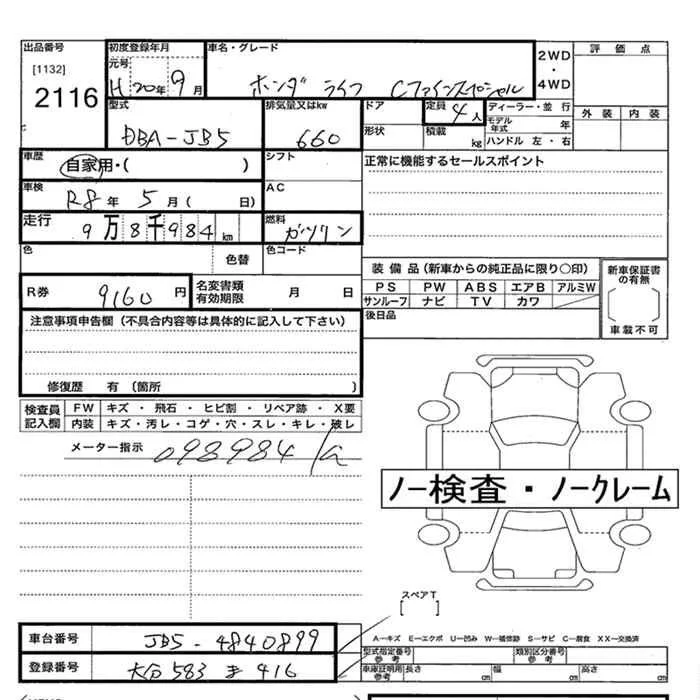 出品番号
[1132]
2116
初度登録年月
元号
H 20年 9月
車名・グレード
ホンダ ライフ Cファインスペシャル
2WD
・
4WD
評価点
外装 内装
型式
DBA-JB5
排気量又はkw
660
ドア
形状
定員
4人
積載
kg
ディーラー・並行
モデル年式 年
ハンドル 左・右
車歴
自家用・( )
シフト
正常に機能するセールスポイント
車検
R8年 5月( 日)
AC
走行
9万8千984km
燃料
ガソリン
色
色替
色コード
装備品(新車からの純正品に限り○印)
PS PW ABS エアB アルミW
サンルーフ ナビ TV カワ
新車保証書の有無
[ ]
車載不可
R券
9160円
名変書類有効期限
月 日
後日品
注意事項申告欄(不具合内容等は具体的に記入して下さい)
修復歴 有(箇所 )
検査員記入欄
FW キズ・飛石・ヒビ割・リペア跡・X要
内装 キズ・汚レ・コゲ・穴・スレ・キレ・破レ
メーター指示
098984km
ノー検査・ノークレーム
スペアT
[ ]
車台番号
JB5-4840899
A-キズ E-エクボ U-凹み W-補修跡 S-サビ C-腐食 XX-交換済
型式指定番号参考
類別区分番号参考
登録番号
大分 583 き 416
車庫証明用参考
長さ cm 幅 cm 高さ cm